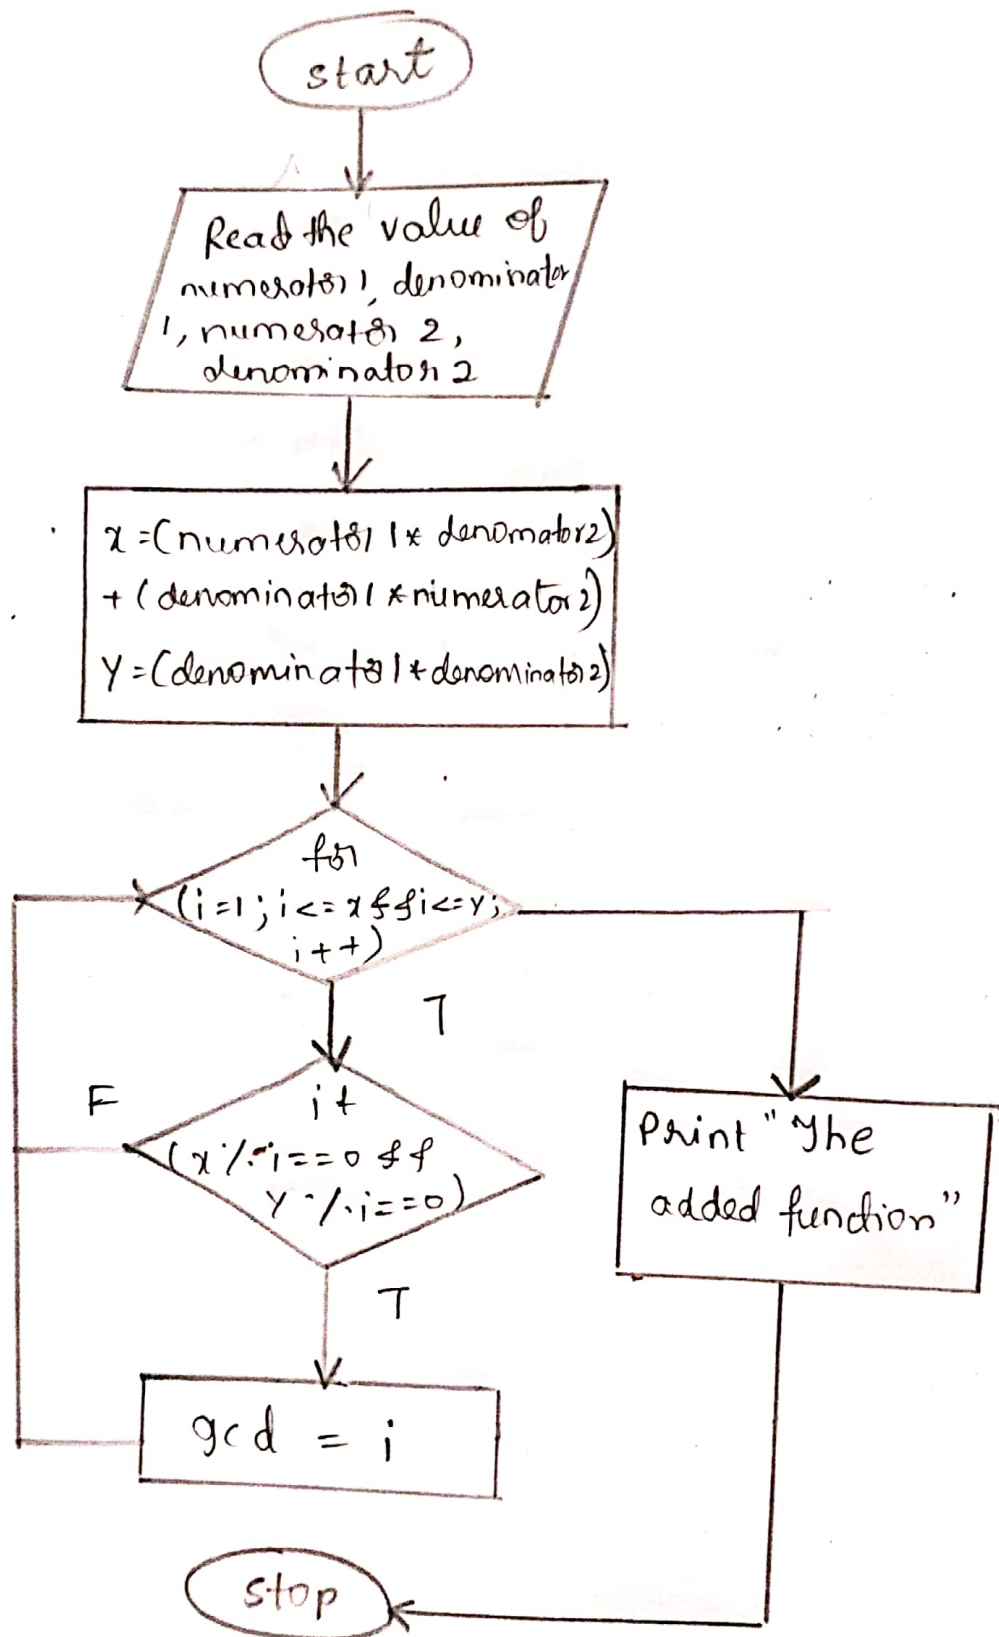 start
Read the value of
numerator 1, denominator
1, numerator 2,
denominator 2
x = (numerator 1 * denomator2)
+ (denominator 1 * numerator 2)
y = (denominator 1 * denominator 2)
for
(i=1; i<=x &&i<=y;
i++)
T
F
if
(x%i==0 &&
y%i==0)
T
gcd = i
Print "The
added function"
stop